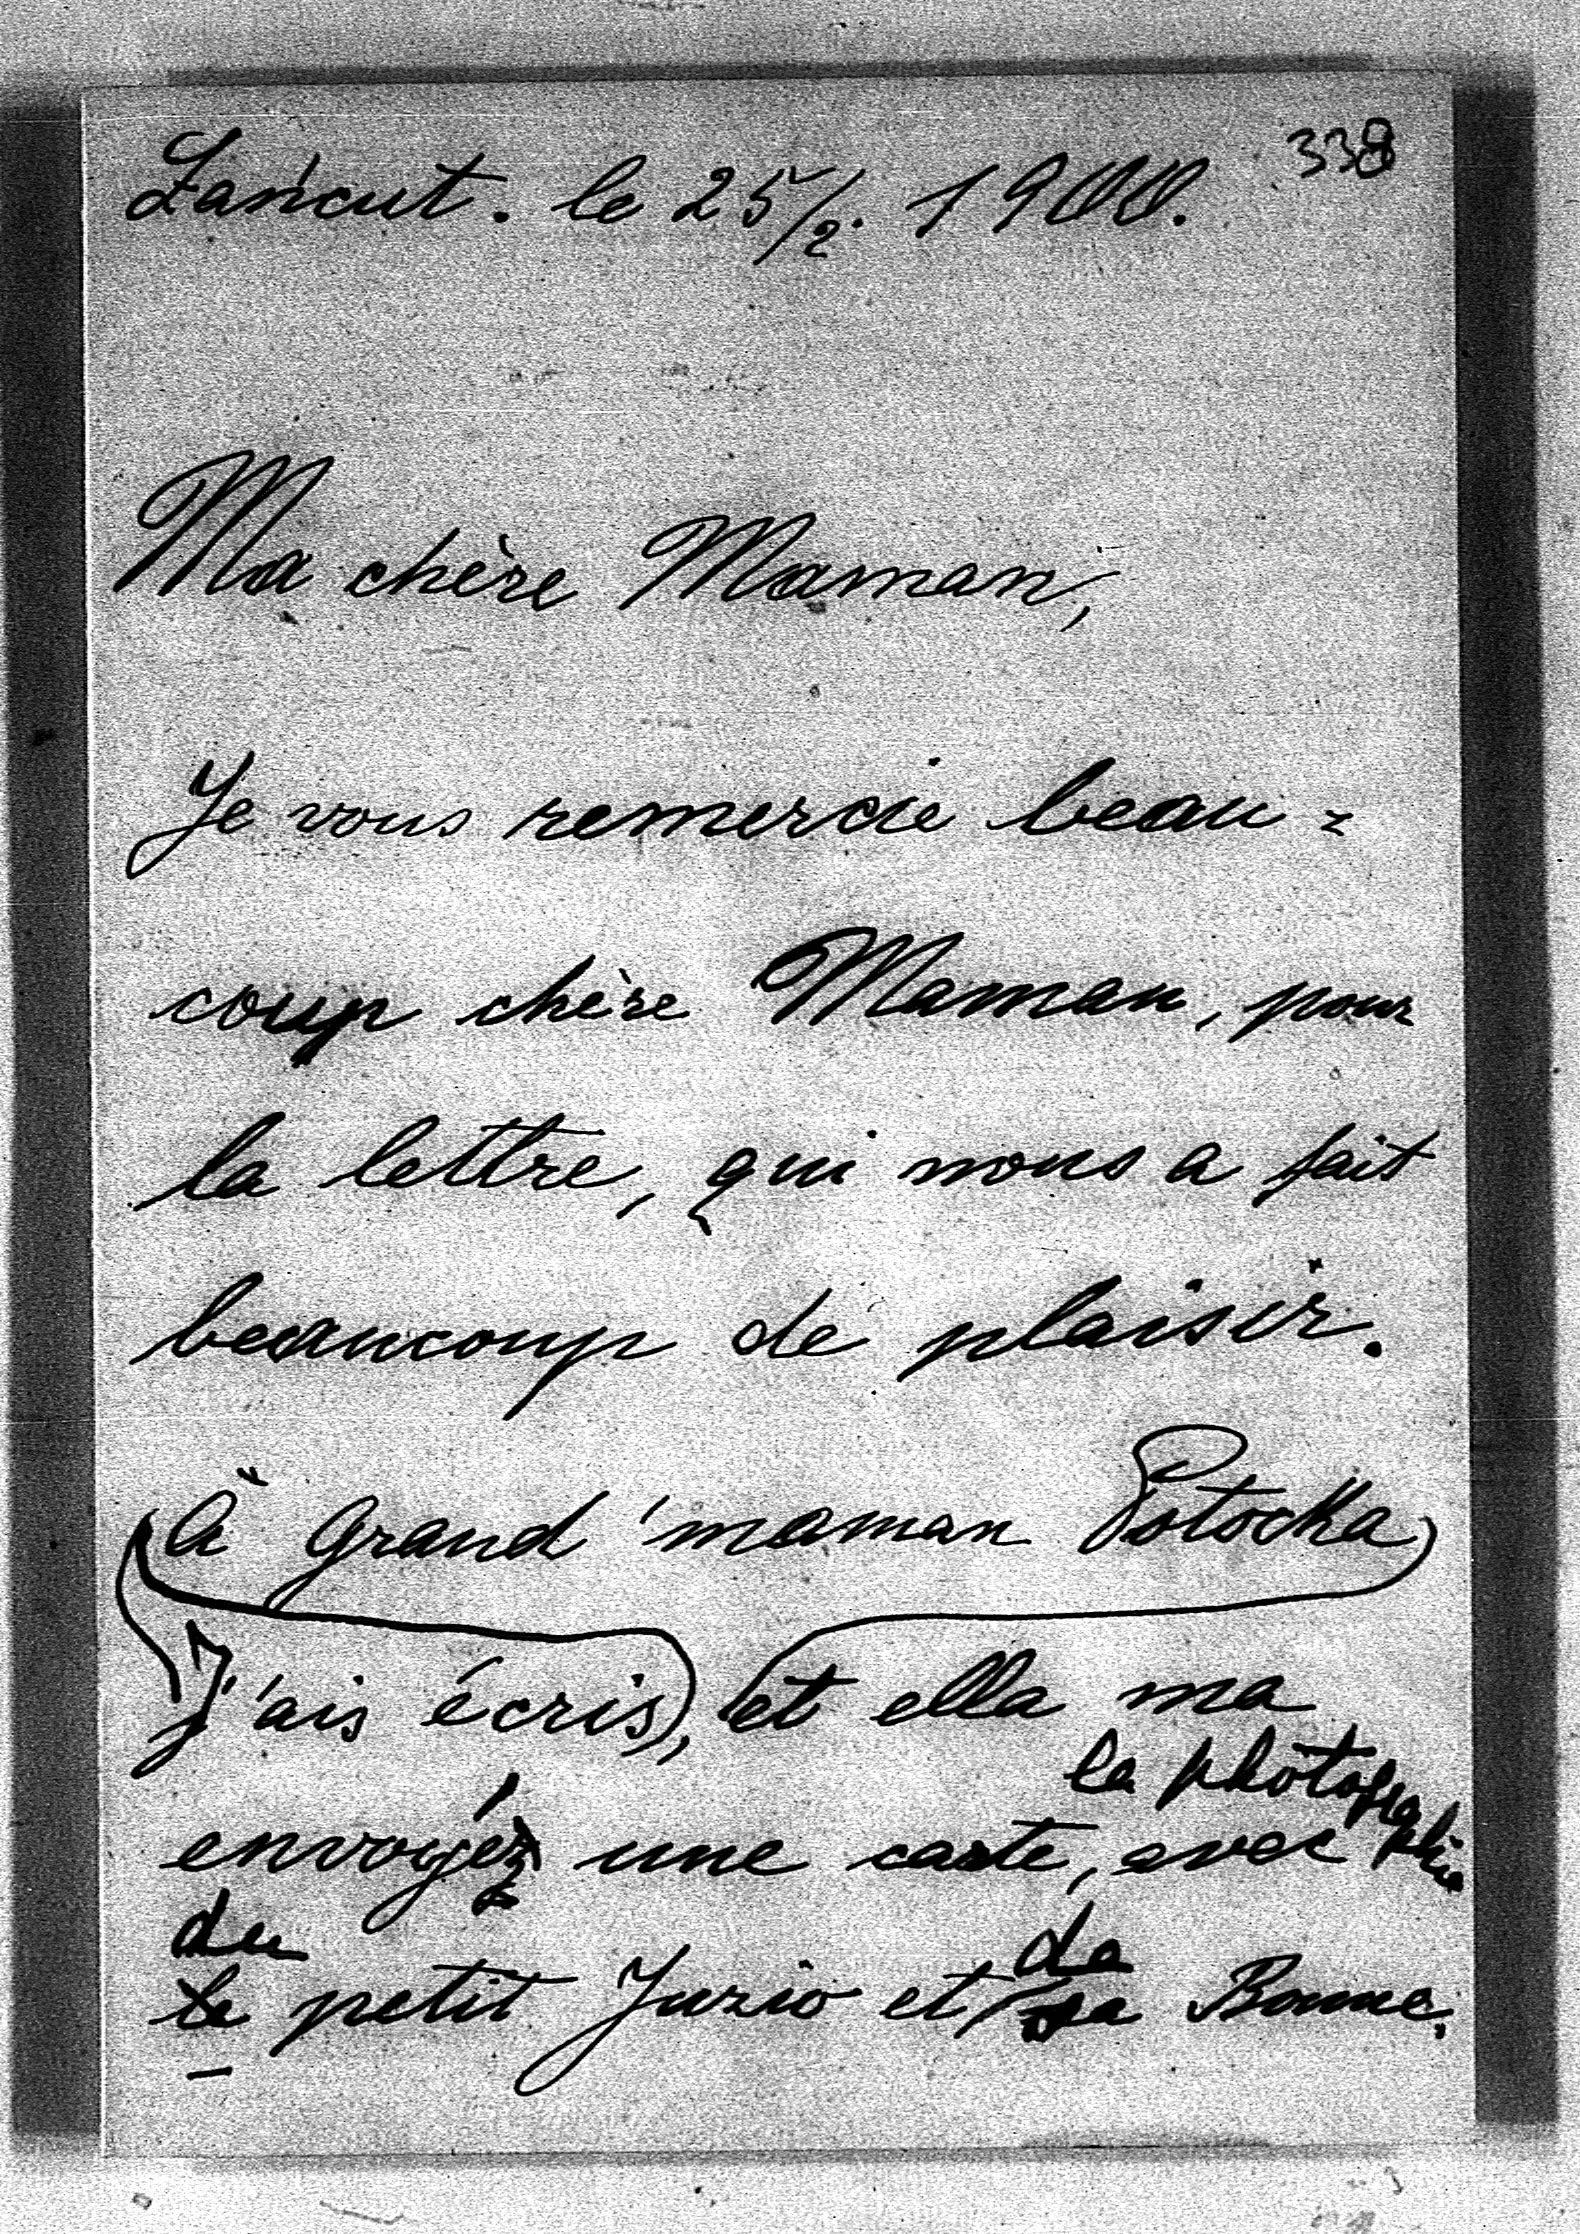 338
Łańcut. le 25/2. 1900.
Ma chère Maman,
Je vous remercie beau=
coup chère Maman, pour
la lettre, qui nous a fait
beaucoup de plaisir.
à Grand'maman Potocka
j'ais écris, et ella ma
la photographie
envoyéz une carte, avec
du de
le petit Juzio et sa Bonne.